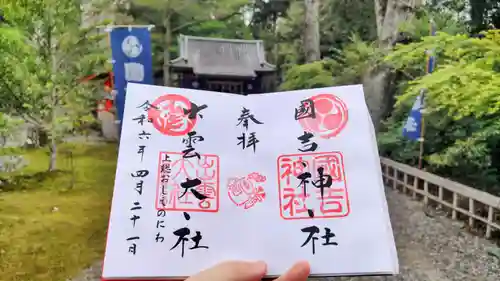 国吉神社
国吉神社
奉拝
出雲大社
出雲大社
上総おしものにわ
令和六年四月二十一日